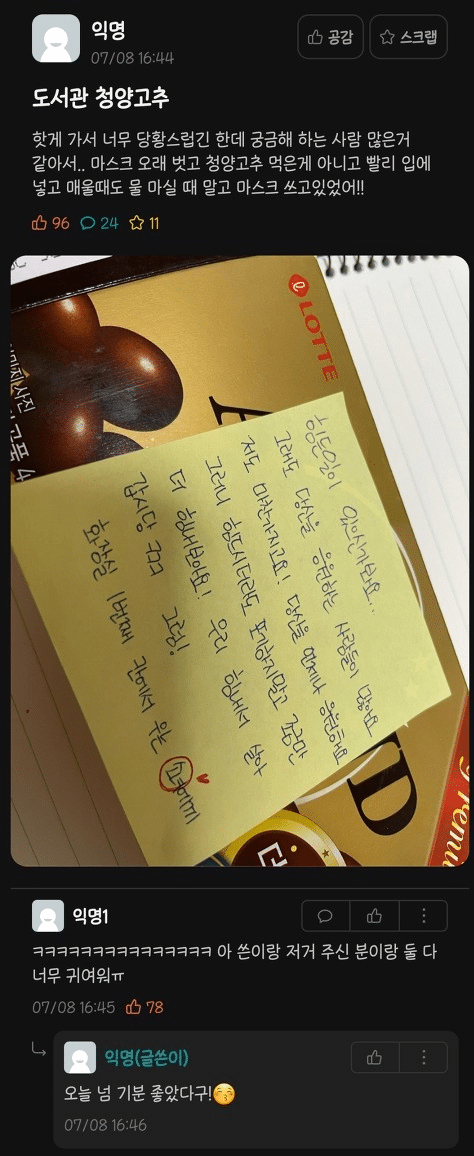 익명
07/08 16:44
공감
스크랩
도서관 청양고추
핫게 가서 너무 당황스럽긴 한데 궁금해 하는 사람 많은거
같아서.. 마스크 오래 벗고 청양고추 먹은게 아니고 빨리 입에
넣고 매울때도 물 마실 때 말고 마스크 쓰고있었어!!
96 24 11
LOTTE
A
사진
힘든일이 있으신가봐요..
그래도 당신을 응원하는 사람들이 많아요
저도 마찬가지고요! 당신을 언제나 응원해요
그러니 힘드시더라도 포기하지말고 조금만
더 힘내봐요! 우리 힘내서 살아
갑시당 그럼!
화장실 번째 칸에서
D
익명1
ㅋㅋㅋㅋㅋㅋㅋㅋㅋㅋㅋㅋㅋㅋㅋ 아 쓴이랑 저거 주신 분이랑 둘 다
너무 귀여워ㅠ
07/08 16:45 78
익명(글쓴이)
오늘 넘 기분 좋았다구!😚
07/08 16:46